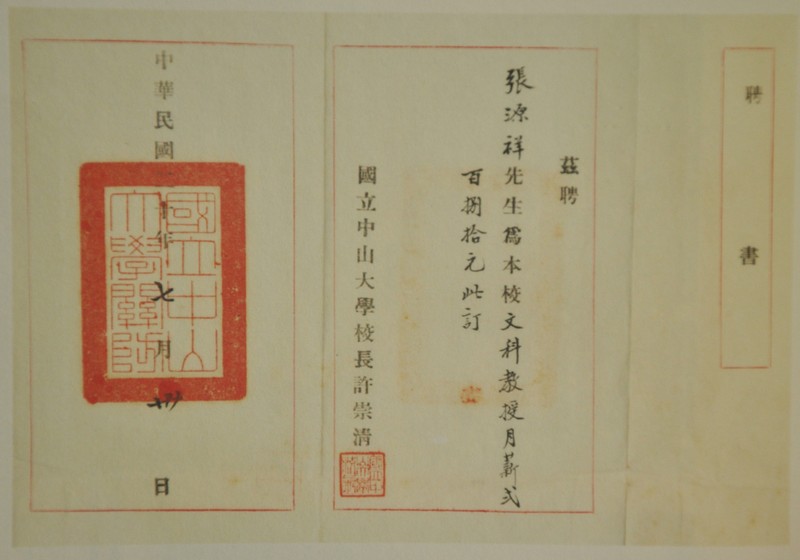 聘書
茲聘
張源祥先生爲本校文科教授月薪弍
百捌拾元此訂
國立中山大學校長許崇清
中華民國十年七月日
國立中山
大學關防